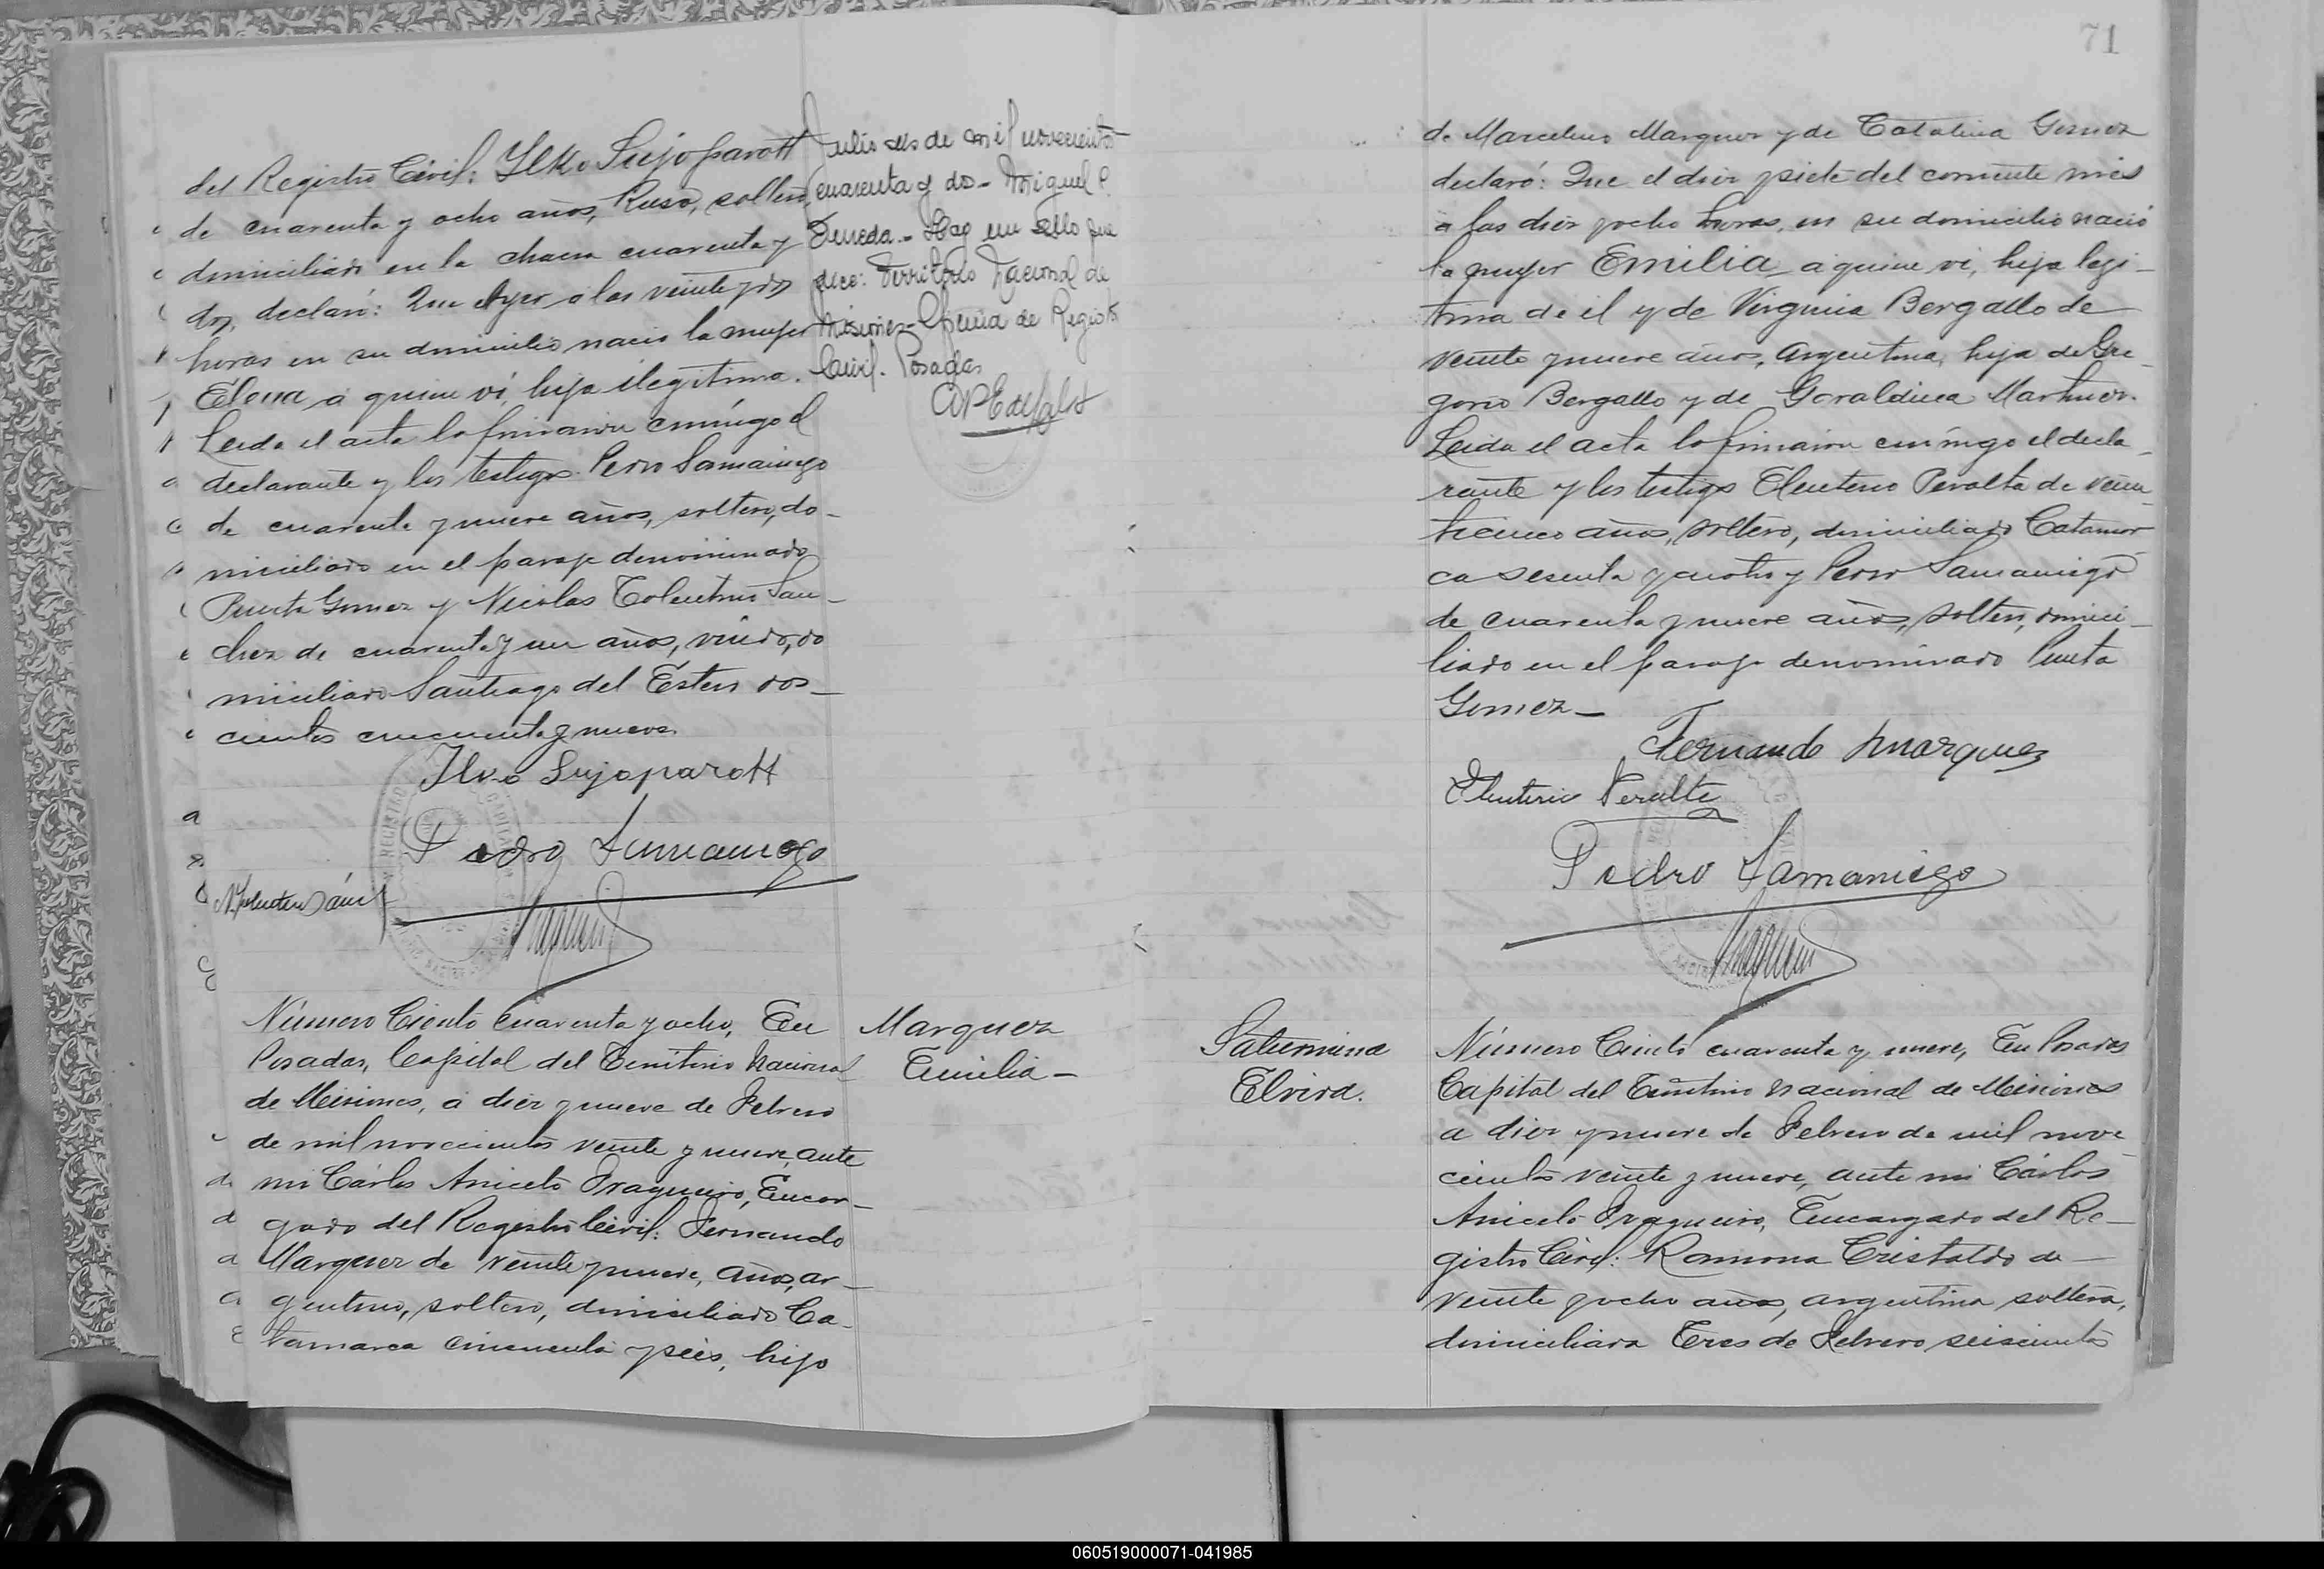 del Registro Civil: Ilko Sujoparott
de cuarenta y ocho años, Ruso, soltero,
domiciliado en la chacra cuarenta y
dos, declaró: Que Ayer a las veinte y dos
horas en su domicilio nació la mujer
Elena a quien vi, hija ilegítima.
Leida el acta la firmaron conmigo el
declarante y los testigos Pedro Samaniego
de cuarenta y nueve años, soltero, do-
miciliado en el paraje denominado
Punta Gomez y Nicolas Tolentino San-
chez de cuarenta y un años, viudo, do
miciliado Santiago del Estero dos-
cientos cincuenta y nueve.
Ilko Sujoparott
Pedro Samaniego
Número Ciento cuarenta y ocho, En
Posadas, Capital del Territorio Nacional
de Misiones, á diez y nueve de Febrero
de mil novecientos veinte y nueve, ante
mi Cárlos Aniceto Fragueiro, Encar-
gado del Registro Civil: Fernando
Marquez de veinte y nueve, años, ar-
gentino, soltero, domiciliado Ca-
tamarca cincuenta y seis, hijo
Julio seis de mil novecientos
cuarenta y dos - Miguel C.
Hay un sello que
dice: Territorio Nacional de
Misiones - Oficina de Registro
Civil. Posadas
Marquez
Emilia -
71
de Marcelino Marquez y de Catalina Gomez
declaró: Que el diez y siete del corriente més
a las diez y ocho horas, en su domicilio nació
la mujer Emilia a quien vi, hija legi-
tima de él y de Virginia Bergallo de
veinte y nueve años, Argentina, hija de Gre-
gorio Bergallo y de Geraldina Martinez.
Leida el acta la firmaron conmigo el decla-
rante y los testigos Eleuterio Peralta de vein-
ticinco años, soltero, domiciliado Catamar
ca sesenta y cuatro y Pedro Samaniego
de cuarenta y nueve años, soltero, domici-
liado en el paraje denominado Punta
Gomez -
Fernando Marquez
Eleuterio Peralta
Pedro Samaniego
Saturnina
Elvira.
Número Ciento cuarenta y nueve, En Posadas
Capital del Territorio Nacional de Misiones
a diez y nueve de Febrero de mil nove
cientos veinte y nueve, ante mi Cárlos
Aniceto Fragueiro, Encargado del Re-
gistro Civil: Ramona Cristaldo de
veinte y ocho años, argentina soltera,
domiciliada Tres de Febrero seiscientos
060519000071-041985